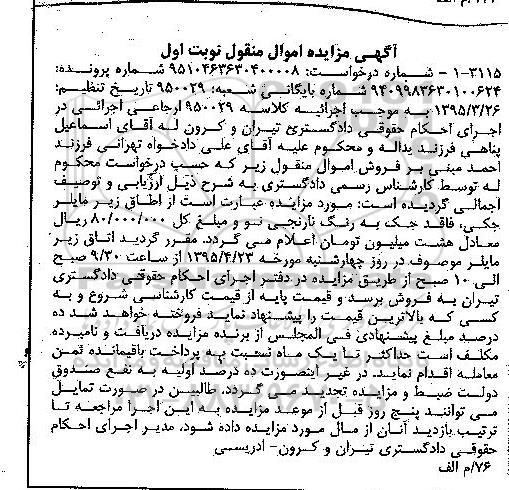 آگهی مزایده اموال منقول نوبت اول
۱-۳۱۱۵ - شماره درخواست: ۹۵۱۰۴۶۳۶۳۰۴۰۰۰۰۸ شماره پرونده:
۹۴۰۹۹۸۳۶۳۰۱۰۰۶۲۴ شماره بایگانی شعبه: ۹۵۰۰۲۹ تاریخ تنظیم:
۱۳۹۵/۳/۲۶ به موجب اجرائیه کلاسه ۹۵۰۰۲۹ ارجاعی اجرائی در
اجرای احکام حقوقی دادگستری تیران و کرون له آقای اسماعیل
پناهی فرزند یداله و محکوم علیه آقای علی دادخواه تهرانی فرزند
احمد مبنی بر فروش اموال منقول زیر که حسب درخواست محکوم
له توسط کارشناس رسمی دادگستری به شرح ذیل ارزیابی و توصیف
اجمالی گردیده است: مورد مزایده عبارت است از اطاق زیر مایلر
جکی، فاقد جک به رنگ نارنجی نو و مبلغ کل ۸۰/۰۰۰/۰۰۰ ریال
معادل هشت میلیون تومان اعلام می گردد. مقرر گردید اتاق زیر
مایلر موصوف در روز چهارشنبه مورخه ۱۳۹۵/۴/۲۳ از ساعت ۹/۳۰ صبح
الی ۱۰ صبح از طریق مزایده در دفتر اجرای احکام حقوقی دادگستری
تیران به فروش برسد و قیمت پایه از قیمت کارشناسی شروع و به
کسی که بالاترین قیمت را پیشنهاد نماید فروخته خواهد شد ده
درصد مبلغ پیشنهادی فی المجلس از برنده مزایده دریافت و نامبرده
مکلف است حداکثر تا یک ماه نسبت به پرداخت باقیمانده ثمن
معامله اقدام نماید. در غیر اینصورت ده درصد اولیه به نفع صندوق
دولت ضبط و مزایده تجدید می گردد. طالبین در صورت تمایل
می توانند پنج روز قبل از موعد مزایده به این اجرا مراجعه تا
ترتیب بازدید آنان از مال مورد مزایده داده شود. مدیر اجرای احکام
حقوقی دادگستری تیران و کرون- ادریسی
۷۶/م الف